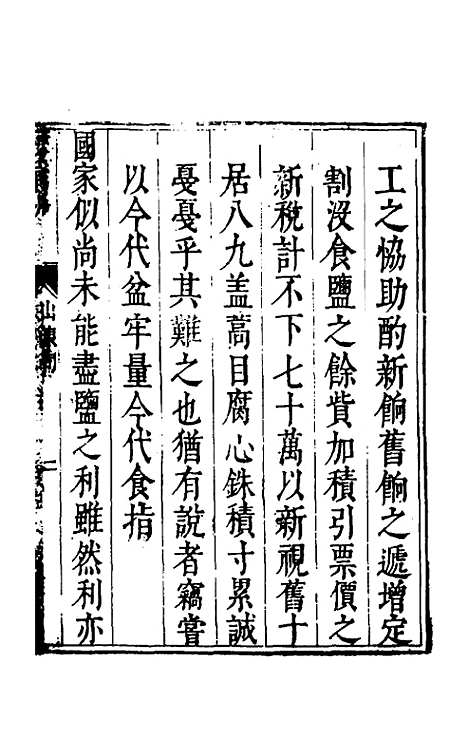 工之恊助酌新餉舊餉之遞增定
割沒食鹽之餘貲加積引票價之
新稅計不下七十萬以新視舊十
居八九盖蒿目腐心銖積寸累誠
戞戞乎其難之也猶有說者竊嘗
以今代盆牢量今代食指
國家似尚未能盡鹽之利雖然利亦